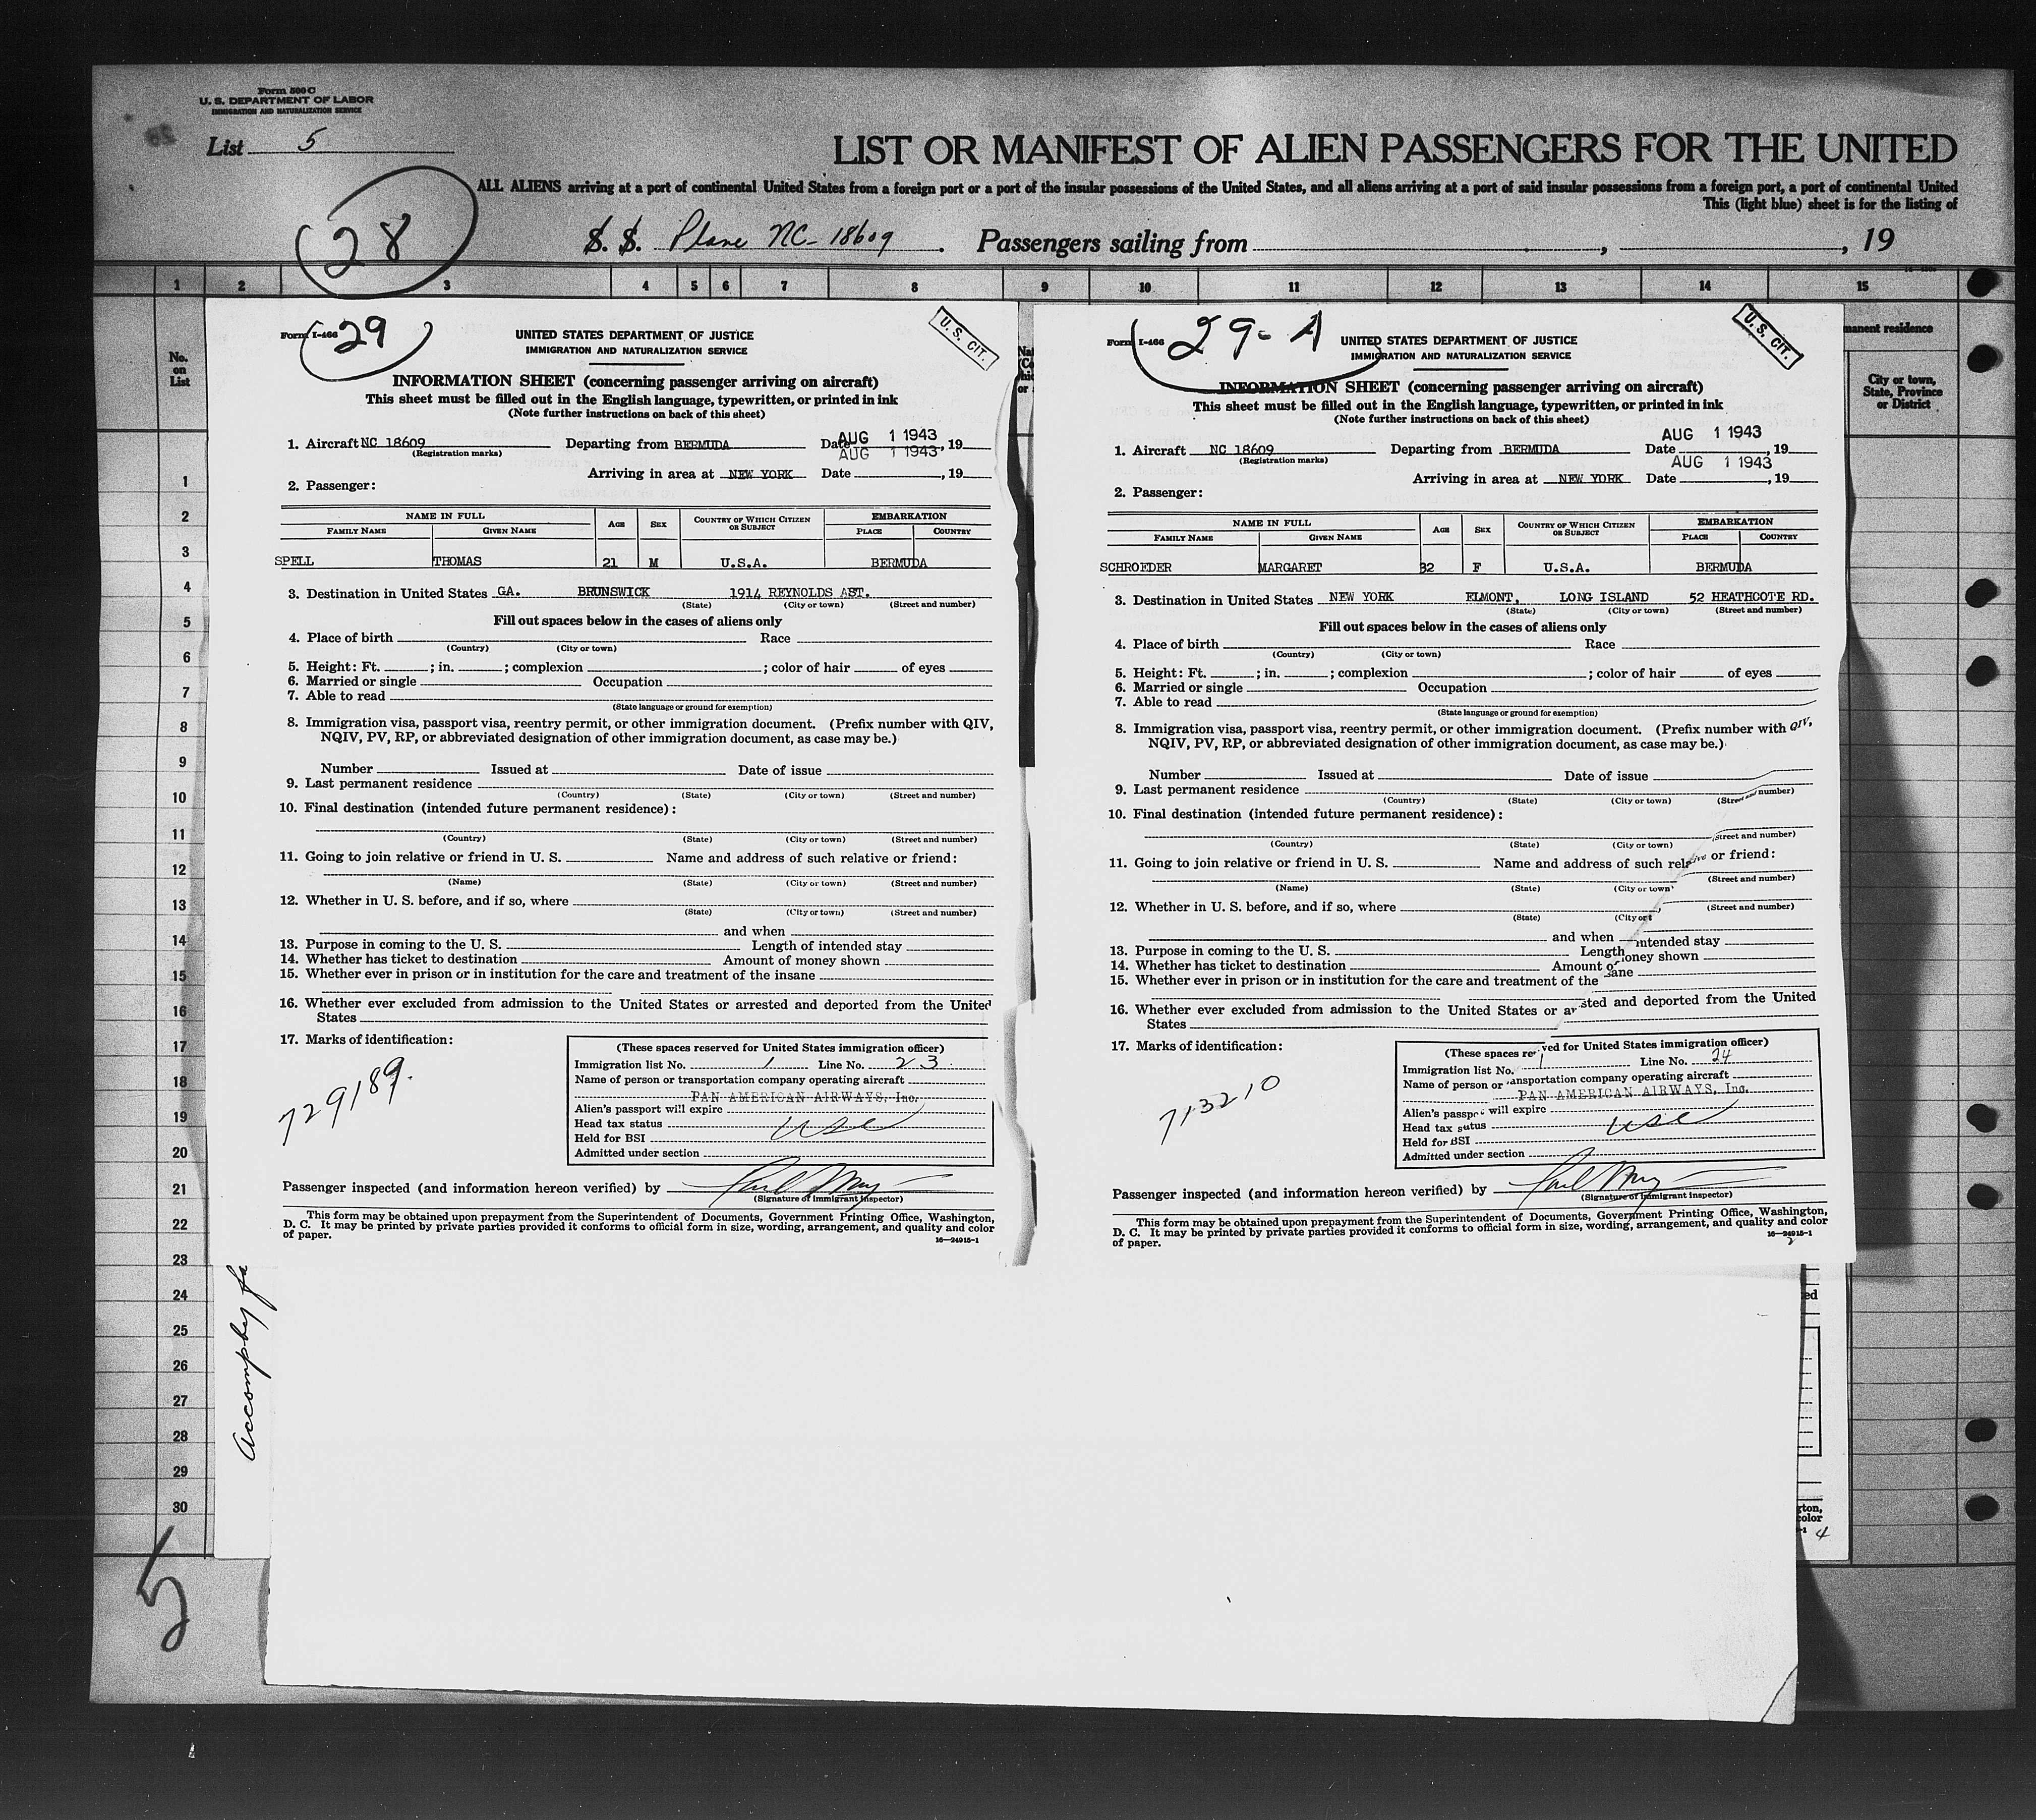 Form 500 C
U. S. DEPARTMENT OF LABOR
IMMIGRATION AND NATURALIZATION SERVICE
List 5
LIST OR MANIFEST OF ALIEN PASSENGERS FOR THE UNITED
ALL ALIENS arriving at a port of continental United States from a foreign port or a port of the insular possessions of the United States, and all aliens arriving at a port of said insular possessions from a foreign port, a port of continental United
This (light blue) sheet is for the listing of
28
S. S. Plane NC-18609. Passengers sailing from , , 19
1 2 3 4 5 6 7 8 9 10 11 12 13 14 15
No. on List
manent residence
City or town, State, Province or District
1
2
3
4
5
6
7
8
9
10
11
12
13
14
15
16
17
18
19
20
21
22
23
24
25
26
27
28
29
30
5
Form I-466
29
U. S. CIT.
UNITED STATES DEPARTMENT OF JUSTICE
IMMIGRATION AND NATURALIZATION SERVICE
INFORMATION SHEET (concerning passenger arriving on aircraft)
This sheet must be filled out in the English language, typewritten, or printed in ink
(Note further instructions on back of this sheet)
1. Aircraft NC 18609 Departing from BERMUDA Date AUG 1 1943, 19
(Registration marks)
Arriving in area at NEW YORK Date AUG 1 1943, 19
2. Passenger:
NAME IN FULL AGE SEX COUNTRY OF WHICH CITIZEN OR SUBJECT EMBARKATION
FAMILY NAME GIVEN NAME PLACE COUNTRY
SPELL THOMAS 21 M U.S.A. BERMUDA
3. Destination in United States GA. BRUNSWICK 1914 REYNOLDS AST.
(State) (City or town) (Street and number)
Fill out spaces below in the cases of aliens only
4. Place of birth Race
(Country) (City or town)
5. Height: Ft. ; in. ; complexion ; color of hair of eyes
6. Married or single Occupation
7. Able to read
(State language or ground for exemption)
8. Immigration visa, passport visa, reentry permit, or other immigration document. (Prefix number with QIV,
NQIV, PV, RP, or abbreviated designation of other immigration document, as case may be.)
Number Issued at Date of issue
9. Last permanent residence
(Country) (State) (City or town) (Street and number)
10. Final destination (intended future permanent residence):
(Country) (State) (City or town) (Street and number)
11. Going to join relative or friend in U. S. Name and address of such relative or friend:
(Name) (State) (City or town) (Street and number)
12. Whether in U. S. before, and if so, where
(State) (City or town) (Street and number)
and when
13. Purpose in coming to the U. S. Length of intended stay
14. Whether has ticket to destination Amount of money shown
15. Whether ever in prison or in institution for the care and treatment of the insane
16. Whether ever excluded from admission to the United States or arrested and deported from the United
States
17. Marks of identification:
729189.
(These spaces reserved for United States immigration officer)
Immigration list No. 1 Line No. 23.
Name of person or transportation company operating aircraft
PAN AMERICAN AIRWAYS, Inc.
Alien's passport will expire
Head tax status USC
Held for BSI
Admitted under section
Passenger inspected (and information hereon verified) by
(Signature of immigrant inspector)
This form may be obtained upon prepayment from the Superintendent of Documents, Government Printing Office, Washington,
D. C. It may be printed by private parties provided it conforms to official form in size, wording, arrangement, and quality and color
of paper.
16—24915-1
Form I-466
29-A
U. S. CIT.
UNITED STATES DEPARTMENT OF JUSTICE
IMMIGRATION AND NATURALIZATION SERVICE
INFORMATION SHEET (concerning passenger arriving on aircraft)
This sheet must be filled out in the English language, typewritten, or printed in ink
(Note further instructions on back of this sheet)
1. Aircraft NC 18609 Departing from BERMUDA Date AUG 1 1943, 19
(Registration marks)
Arriving in area at NEW YORK Date AUG 1 1943, 19
2. Passenger:
NAME IN FULL AGE SEX COUNTRY OF WHICH CITIZEN OR SUBJECT EMBARKATION
FAMILY NAME GIVEN NAME PLACE COUNTRY
SCHROEDER MARGARET 32 F U.S.A. BERMUDA
3. Destination in United States NEW YORK ELMONT, LONG ISLAND 52 HEATHCOTE RD.
(State) (City or town) (Street and number)
Fill out spaces below in the cases of aliens only
4. Place of birth Race
(Country) (City or town)
5. Height: Ft. ; in. ; complexion ; color of hair of eyes
6. Married or single Occupation
7. Able to read
(State language or ground for exemption)
8. Immigration visa, passport visa, reentry permit, or other immigration document. (Prefix number with QIV,
NQIV, PV, RP, or abbreviated designation of other immigration document, as case may be.)
Number Issued at Date of issue
9. Last permanent residence
(Country) (State) (City or town) (Street and number)
10. Final destination (intended future permanent residence):
(Country) (State) (City or town) (Street and number)
11. Going to join relative or friend in U. S. Name and address of such relative or friend:
(Name) (State) (City or town) (Street and number)
12. Whether in U. S. before, and if so, where
(State) (City or t (Street and number)
and when
13. Purpose in coming to the U. S. Length intended stay
14. Whether has ticket to destination Amount of money shown
15. Whether ever in prison or in institution for the care and treatment of the sane
16. Whether ever excluded from admission to the United States or arrested and deported from the United
States
17. Marks of identification:
713210
(These spaces reserved for United States immigration officer)
Immigration list No. 1 Line No. 24
Name of person or transportation company operating aircraft
PAN AMERICAN AIRWAYS, Inc.
Alien's passport will expire
Head tax status USC
Held for BSI
Admitted under section
Passenger inspected (and information hereon verified) by
(Signature of immigrant inspector)
This form may be obtained upon prepayment from the Superintendent of Documents, Government Printing Office, Washington,
D. C. It may be printed by private parties provided it conforms to official form in size, wording, arrangement, and quality and color
of paper.
16—24915-1
2
Accompby fa
ed
gton,
color
-1 4